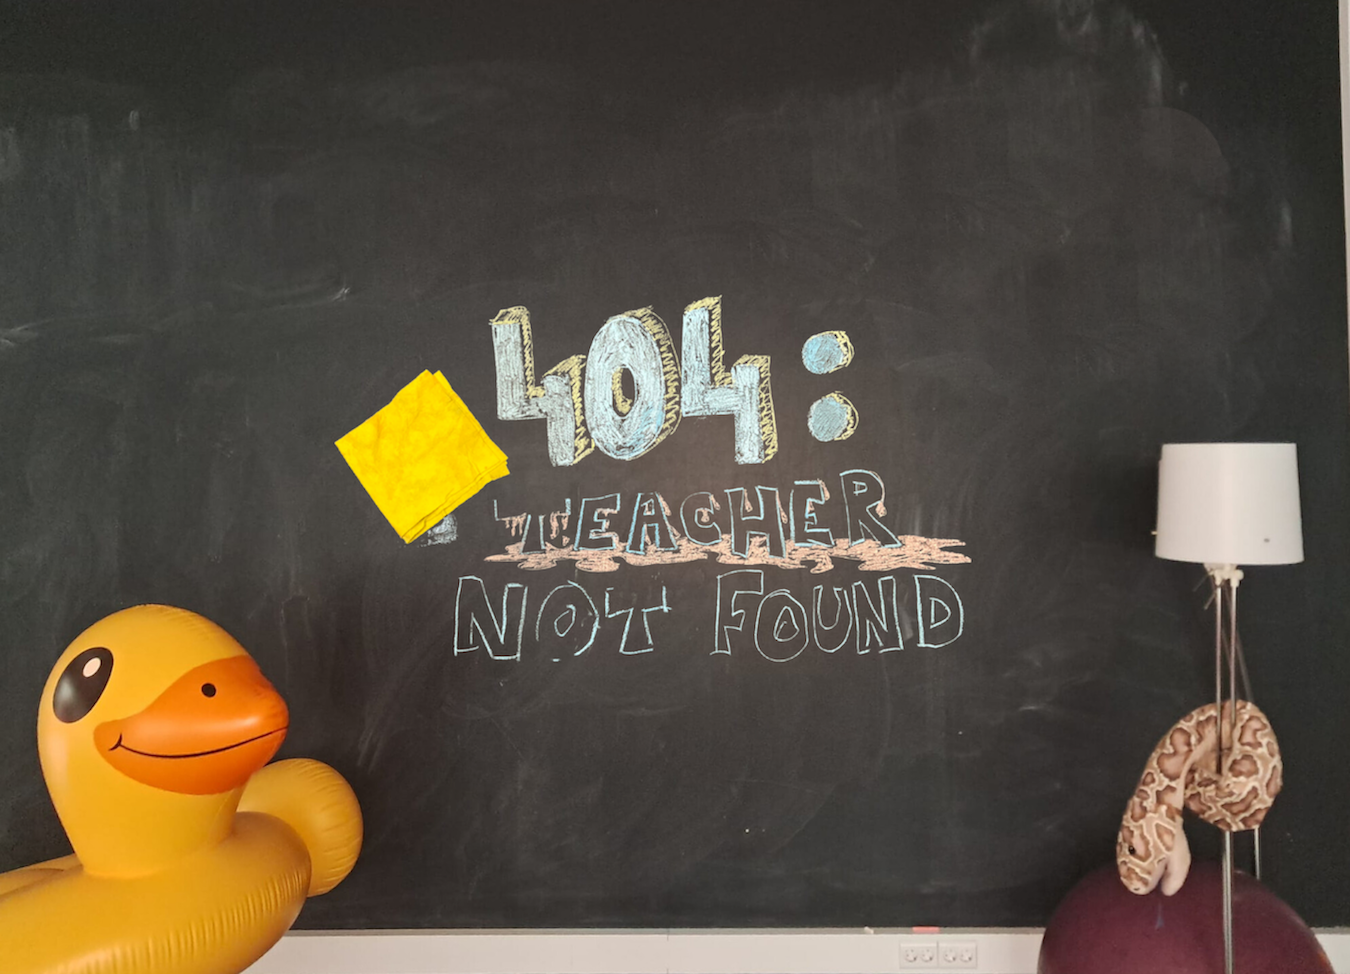 404:
TEACHER
NOT FOUND